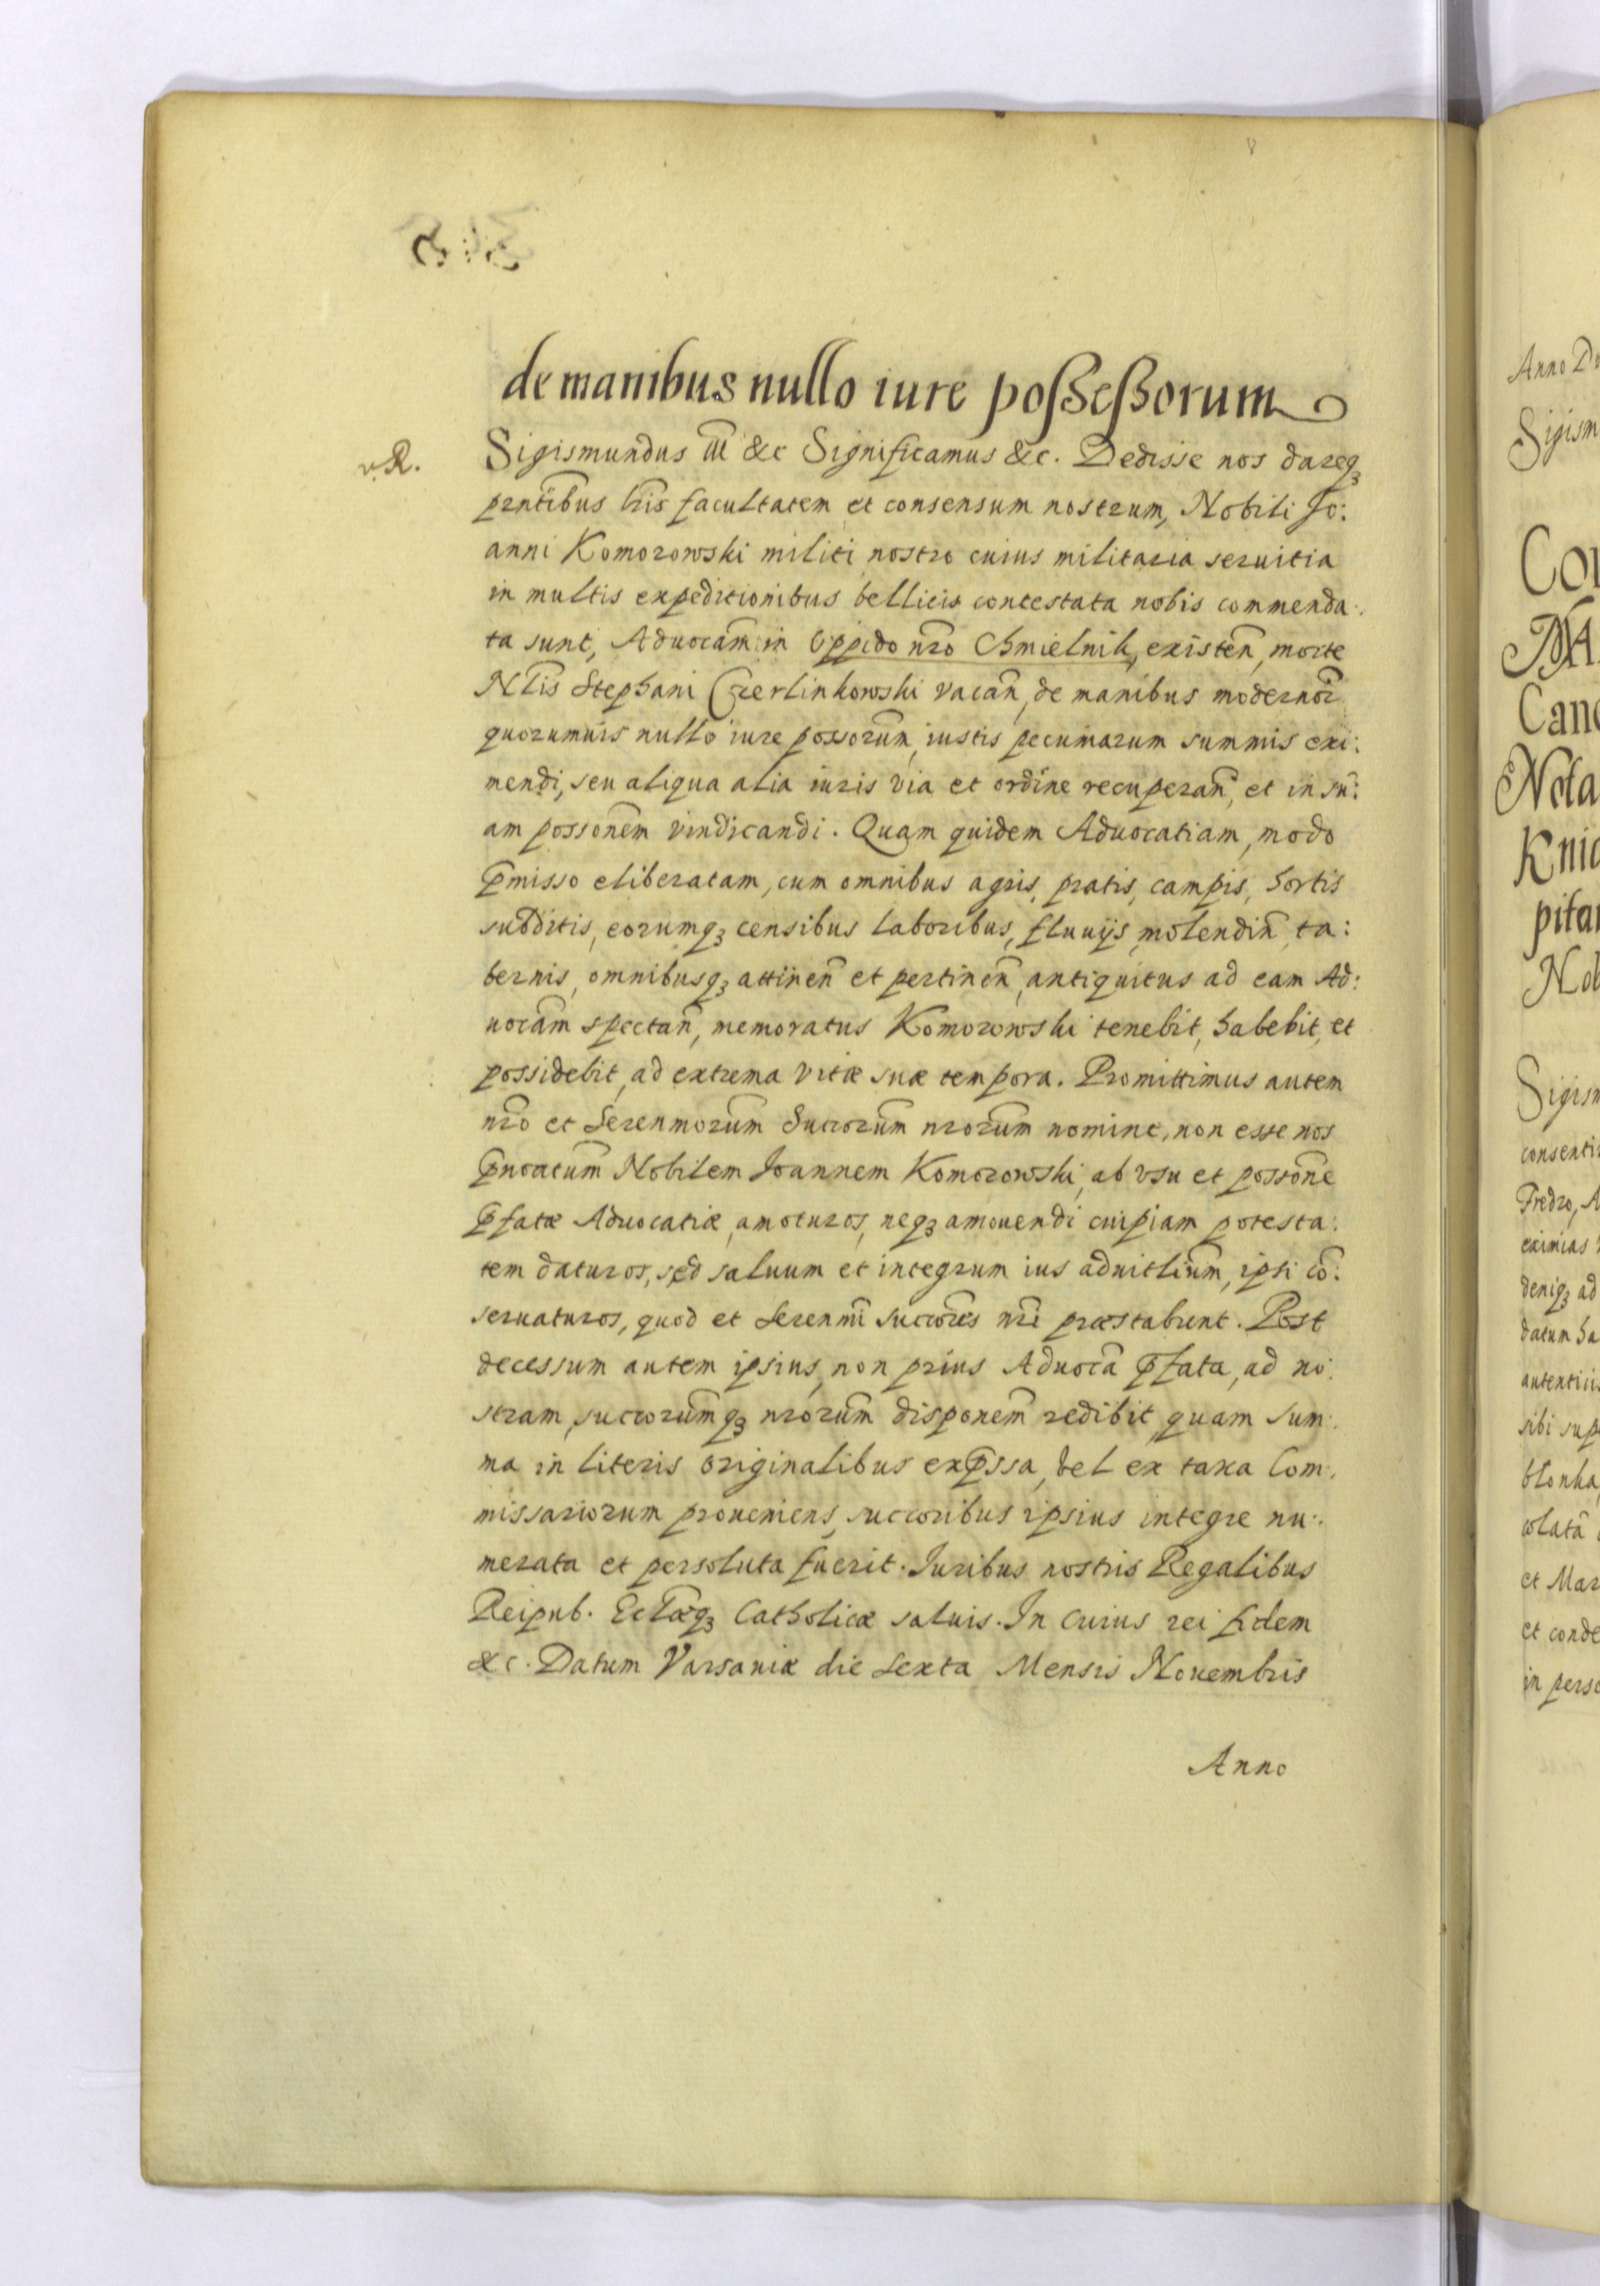 de manibus nullo iure poßeßorum
v. R.
Sigismundus III &c Significamus &c. Dedisse nos dareq3
prntibus lris facultatem et consensum nostrum, Nobili Jo:
anni Komorowski militi nostro cuius militaria seruitia
in multis expeditionibus bellicis contestata nobis commenda:
ta sunt, Aduocam in Oppido nro Chmielnik, existen, morte
Nlis Stephani Czerlinkowski vacan, de manibus modernor
quorumuis nullo iure possorum, iustis pecuniarum summis exi:
mendi, seu aliqua alia iuris via et ordine recuperan, et in su:
am possonem vindicandi. Quam quidem Aduocatiam, modo
pmisso eliberatam, cum omnibus agris, pratis, campis, hortis
subditis, eorumq3 censibus laboribus, fluuijs, molendin ta:
bernis, omnibusq3 attinen et pertinen, antiquitus ad eam Ad:
uocam spectan, memoratus Komorowski tenebit, habebit, et
possidebit, ad extrema vitæ suæ tempora. Promittimus autem
nro et Serenmorum Succorum nrorum nomine, non esse nos
pnoatum Nobilem Joannem Komorowski, ab vsu et possone
pfatæ Aduocatiæ, amoturos, neq3 amouendi cuipiam potesta:
tem daturos, sed saluum et integrum ius aduitlium, ipsi co:
seruaturos, quod et Serenmi succores nri præstabunt. Post
decessum autem ipsius, non prius Aduoca pfata, ad no:
stram, succorumq3 nrorum disponem redibit, quam sum:
ma in literis originalibus expssa, vel ex taxa Com:
missariorum proueniens, succoribus ipsius integre nu:
merata et persoluta fuerit. Juribus nostris Regalibus
Reipub. Eclæq3 Catholicæ saluis. In cuius rei fidem
&c. Datum Varsauiæ die sexta Mensis Nouembris
Anno
Anno
Sigism
Con
MA
Canc
Nota
Knia
pitan
Nob
Sigism
consenti
Fredro, A
eximias
deniq3 ad
datum ha
autenticis
sibi supe
blonka
colata
et Mar
et conde
in perso